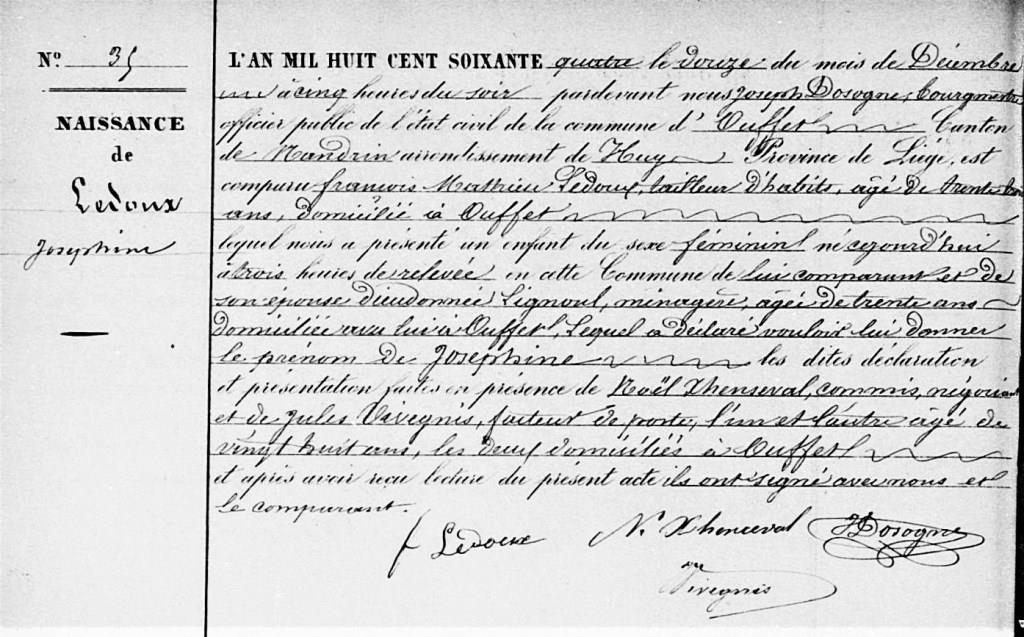 Nº 35
NAISSANCE
de
Ledoux
Josephine
L'AN MIL HUIT CENT SOIXANTE quatre le douze du mois de Décembre
à cinq heures du soir pardevant nous Joseph Dosogne, bourgmestre
officier public de l'état civil de la commune d' Ouffet Canton
de Nandrin arrondissement de Huy Province de Liége, est
comparu françois Mathieu Ledoux, tailleur d'habits, âgé de trente
ans, domicilié à Ouffet
lequel nous a présenté un enfant du sexe féminin né cejourd'hui
à trois heures de relevée en cette Commune de lui comparant et de
son épouse dieudonnée Lignoul, ménagère, âgée de trente ans
domiciliée avec lui à Ouffet, Lequel a déclaré vouloir lui donner
le prénom de Joséphine les dites déclaration
et présentation faites en présence de Noël Xhenseval, commis, négociant
et de Jules Vivegnis, facteur de poste, l'un et l'autre âgé de
vingt huit ans, les deux domiciliés à Ouffet
et après avoir reçu lecture du présent acte ils ont signé avec nous et
le comparant.
f Ledoux N. Xhenceval JDosogne
Vivegnis